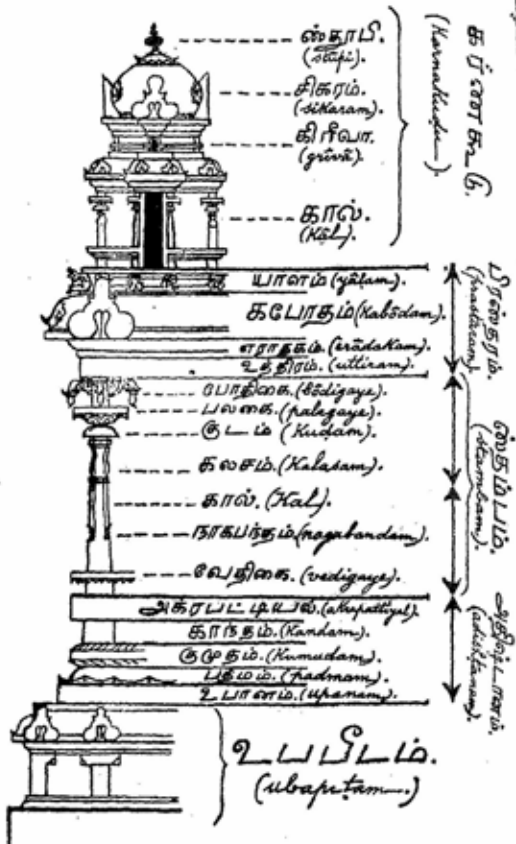 ஸ்தூபி.
(stupi)
சிகரம்.
(sikaram)
கிரீவா.
(grīvā).
கால்.
(Kāl)
கர்ணகூடு.
(Karnakudu).
யாளம் (yālam).
கபோதம் (Kabōdam)
எராதகம். (ērādakam).
உத்திரம். (uttiram).
பிரஸ்தரம்.
(prastaram).
போதிகை. (bōdigaye).
பலகை. (palagaye).
குடம் (Kuḍam).
கலசம். (Kalasam).
கால். (Kal).
நாகபந்தம். (nagabandam).
வேதிகை. (vedigaye).
ஸ்தம்பம்.
(stambam).
அக்ரபட்டியல். (akrapattiyal).
காந்தம். (Kandam).
குமுதம். (Kumudam).
பத்மம். (padmam)
உபானம். (upanam).
அதிஷ்டானம்.
(adhiṣṭānam).
உபபீடம்.
(ubapiṭam.)